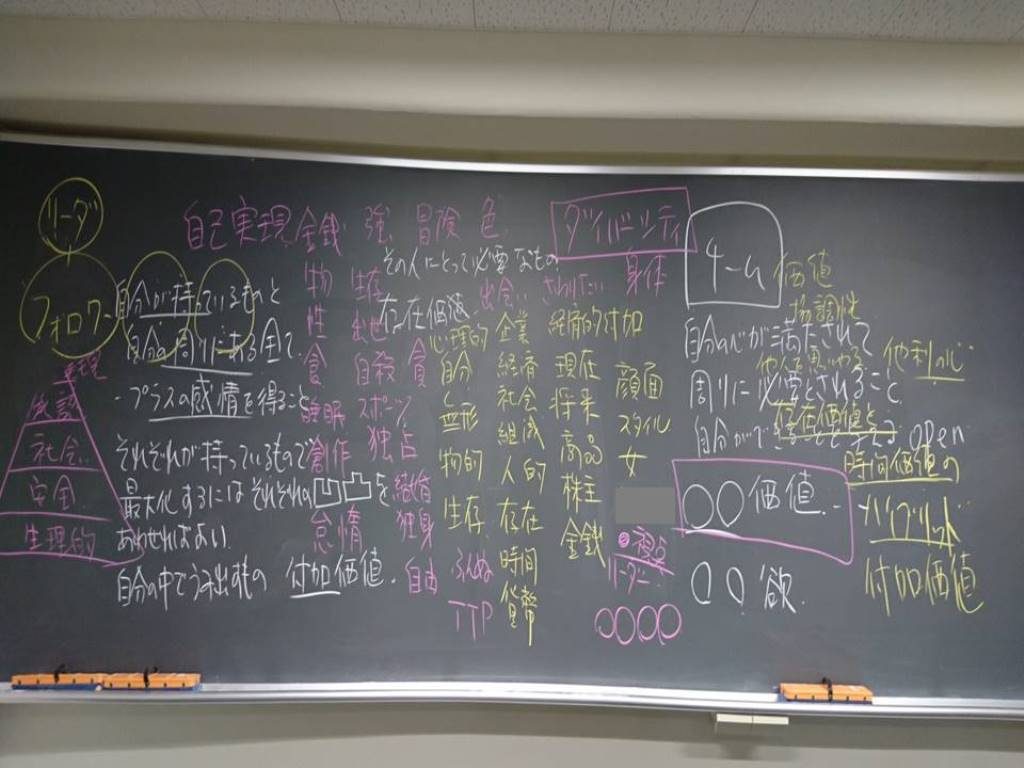 リーダ
フォロワー
自己実現
社会
安全
生理的
自分が持っているものと
自分の周りにある全て
・プラスの感情を得ること
それぞれが持っているもので
最大化するにはそれぞれの凹凸を
あわせればよい
自分の中でうみ出すもの 付加価値.
金銭
物
性
食
睡眠
創作
怠惰
強
生存
出世
自殺
スポーツ
独占
独身
自由
冒険
色
その人にとって必要なもの
存在価値
出会い
心理的
自分
無形
物的
生存
TTP
企業
経済
社会
組織
人的
存在
時間
貨幣
ダイバーシティ
身体
付加
現在
将来
商品
株主
金銭
顔面
スタイル
女
視点
リーダー
〇〇〇〇
チーム
価値
協調性
自分の心が満たされて
他人を思いやる
他利の心
周りに必要とされること
存在価値と
open
〇〇価値
〇〇欲.
時間価値の
ハイブリット
付加価値